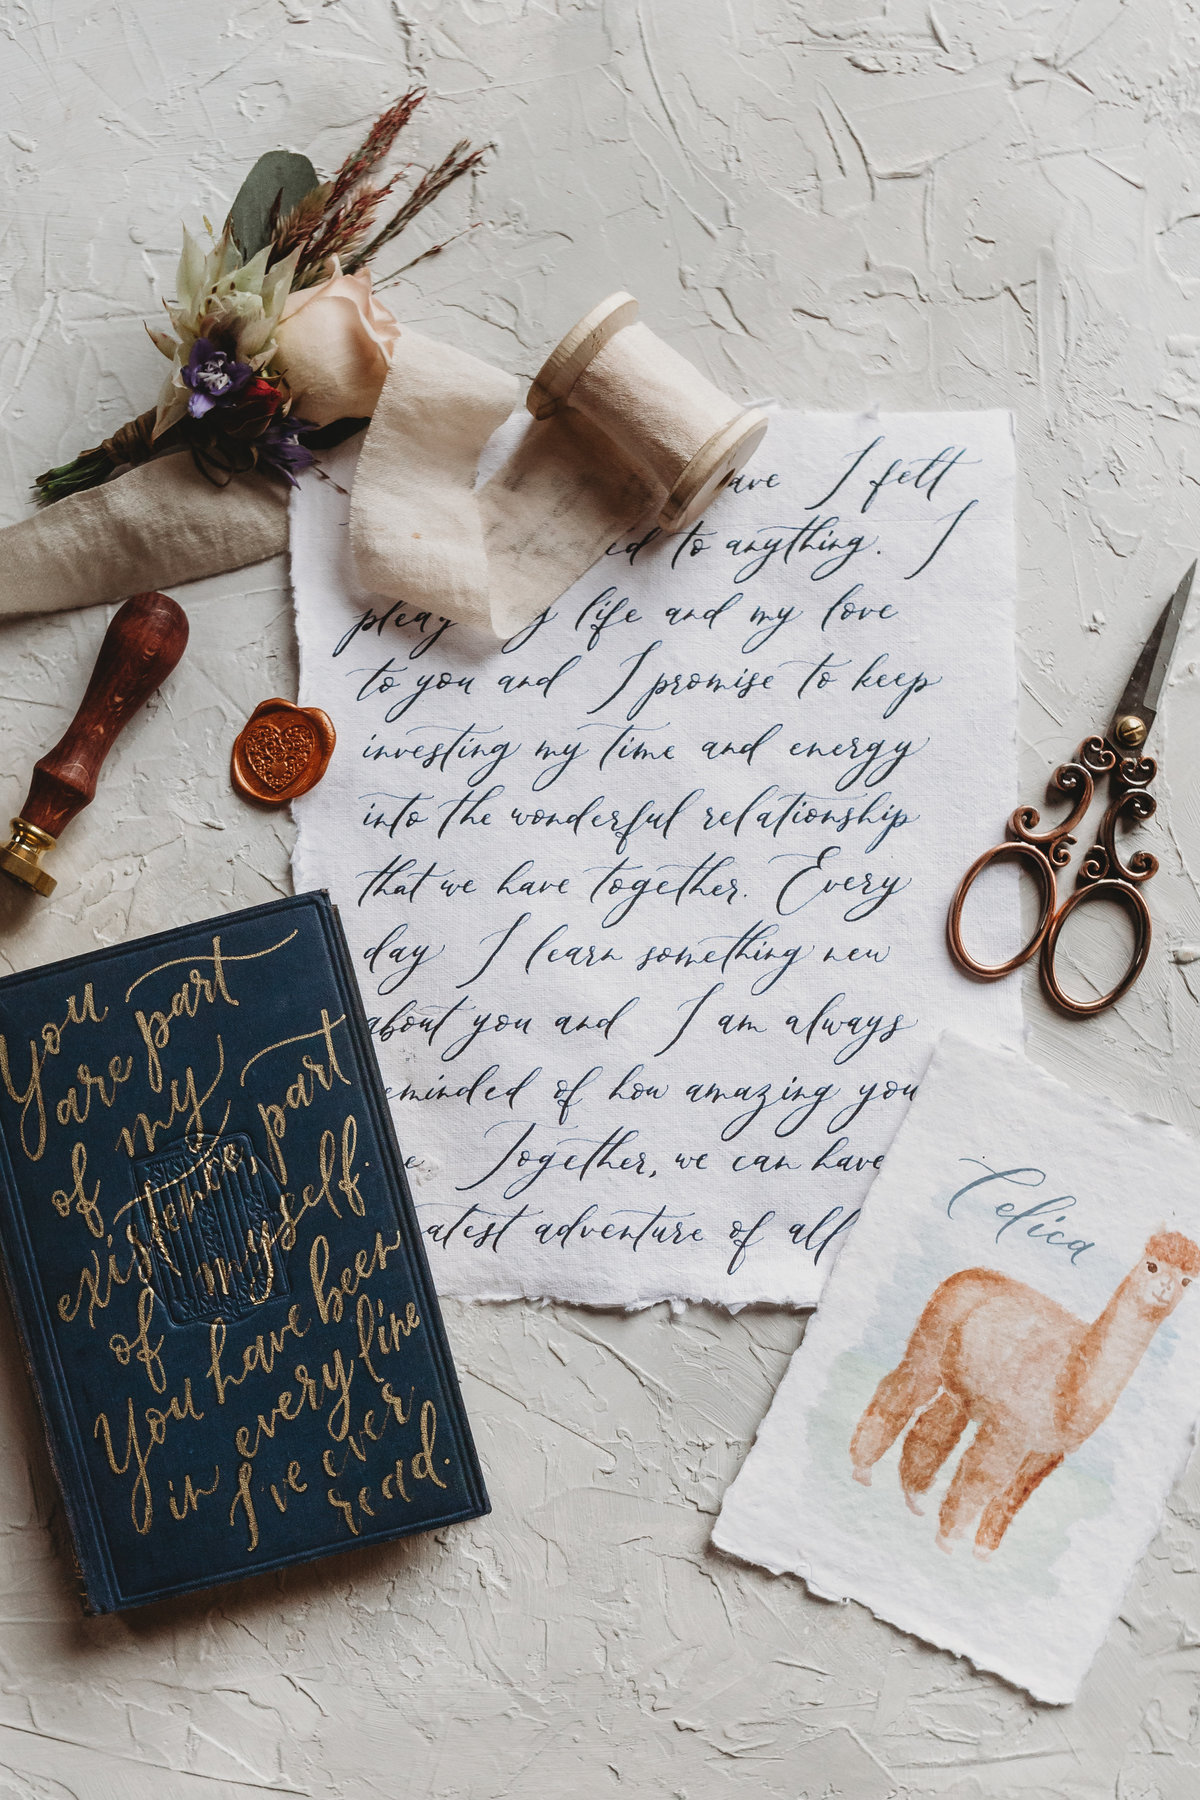 I felt
to anything. I
life and my love
to you and I promise to keep
investing my time and energy
into the wonderful relationship
that we have together. Every
day I learn something new
about you and I am always
of how amazing you
Together, we can have
adventure of all
You
are part
of my
existence, part
of myself.
You have been
in every line
I've ever
read.
Celica